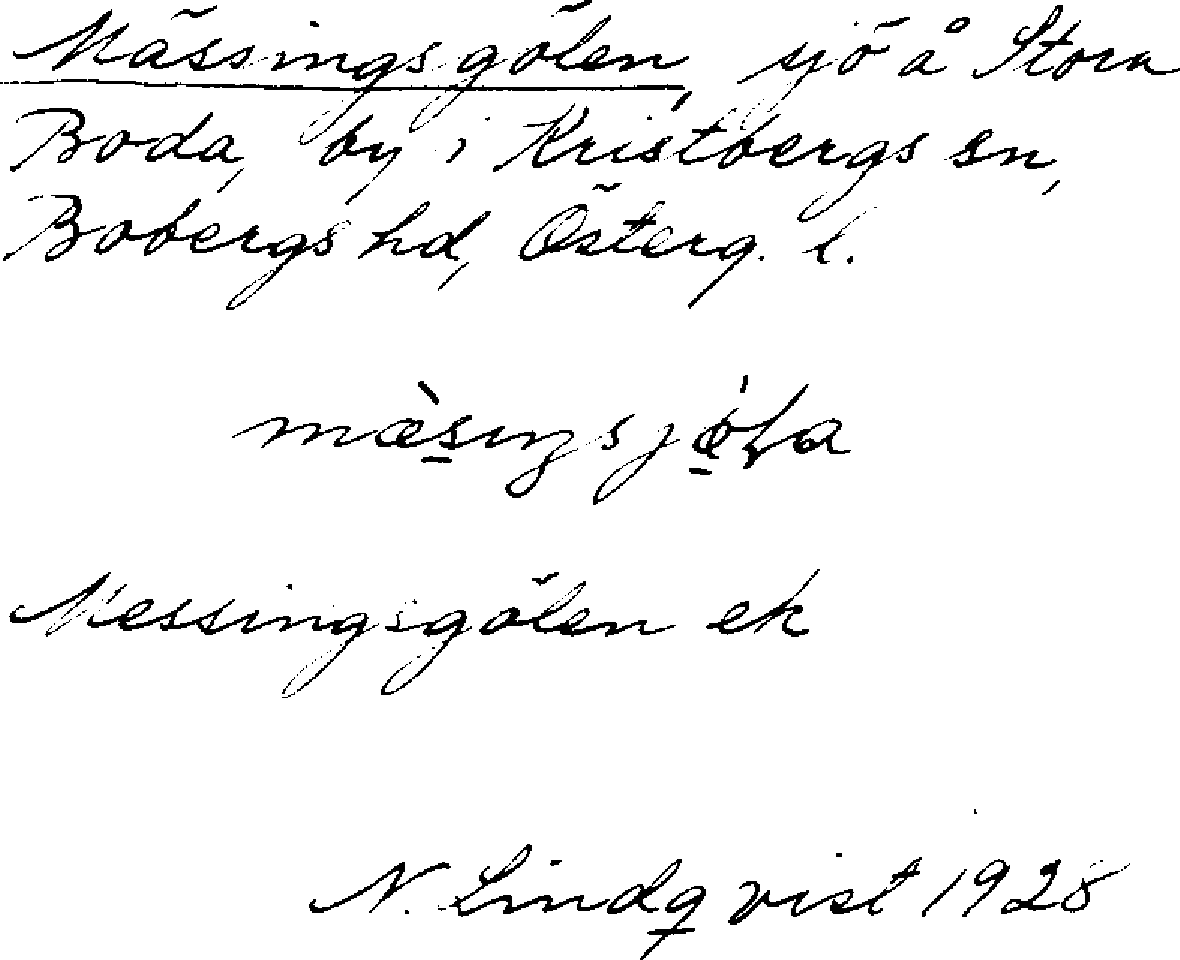 Mässingsgölen, sjö å Stora
Boda, by i Kristbergs sn,
Bobergs hd, Österg. l.
Messingsgölen ek
N. Lindqvist 1928